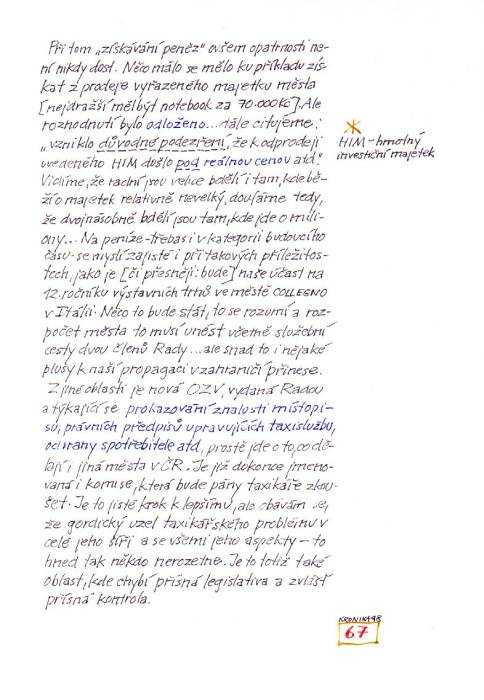 Při tom „získávání peněz" ovšem opatrnosti ne-
ní nikdy dost. Něco málo se mělo ku příkladu zís-
kat z prodeje vyřazeného majetku města
[nejdražší měl být notebook za 70.000 Kč]. Ale
rozhodnutí bylo odloženo... dále citujeme:
„vzniklo důvodné podezření, že k odprodeji
uvedeného HIM došlo pod reálnou cenou atd."
Vidíme, že radní jsou velice bdělí i tam, kde bě-
ží o majetek relativně nevelký, doufáme tedy,
že dvojnásobně bdělí jsou tam, kde jde o mili-
ony... Na peníze - třebas i v kategorii budoucího
času - se myslí zajisté i při takových příležitos-
tech, jako je [či přesněji: bude] naše účast na
12. ročníku výstavních trhů ve městě COLLEGNO
v Itálii. Něco to bude stát, to se rozumí a roz-
počet města to musí unést včetně služební
cesty dvou členů Rady... ale snad to i nějaké
plusy k naší propagaci v zahraničí přinese.
Z jiné oblasti je nová OZV, vydaná Radou
a týkající se prokazování znalostí místopi-
su, právních předpisů upravujících taxislužbu,
ochrany spotřebitele atd, prostě jde o to, co dě-
lají i jiná města v ČR. Je již dokonce jmeno-
vaná i komise, která bude pány taxikáře zkou-
šet. Je to jistě krok k lepšímu, ale obávám se,
že gordický uzel taxikářského problému v
celé jeho šíři a se všemi jeho aspekty - to
hned tak někdo nerozetne. Je to totiž také
oblast, kde chybí přísná legislativa a zvlášť
přísná kontrola.
HIM - hmotný
investiční majetek
KRONIKA 98
67